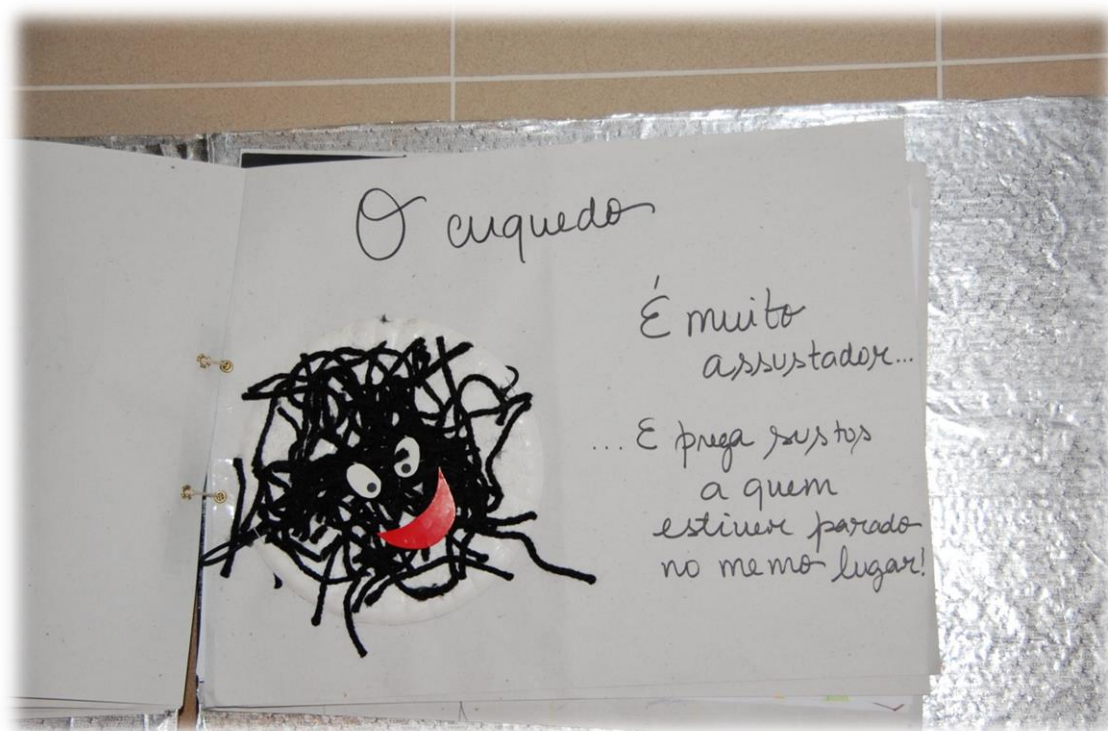 O cuquedo
É muito
assustador...
... E prega sustos
a quem
estiver parado
no memo lugar!